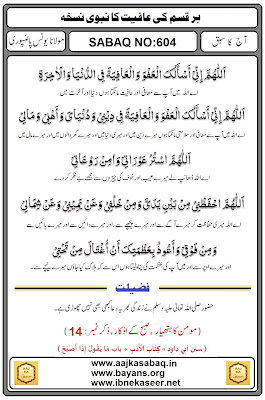 ہر قسم کی عافیت کا نبوی نسخہ
آج کا سبق
SABAQ NO:604
مولانا یونس پالنپوری
اَللّٰهُمَّ إِنِّيْ أَسْأَلُكَ الْعَفْوَ وَالْعَافِيَةَ فِي الدُّنْيَا وَالْآخِرَةِ
اے اللہ میں آپ سے معافی اور عافیت مانگتا ہوں دنیا اور آخرت میں
اَللّٰهُمَّ إِنِّيْ أَسْأَلُكَ الْعَفْوَ وَالْعَافِيَةَ فِيْ دِيْنِيْ وَدُنْيَايَ وَأَهْلِيْ وَمَالِيْ
اے اللہ میں آپ سے معافی اور سلامتی مانگتا ہوں میرے دین میں اور میری دنیا میں اور میرے گھر والوں میں اور میرے مال میں
اَللّٰهُمَّ اسْتُرْ عَوْرَاتِيْ وَآمِنْ رَوْعَاتِيْ
اے اللہ ڈھانپ لے میرے عیب اور خوف کی چیزوں سے مجھے بے فکر کر دے
اَللّٰهُمَّ احْفَظْنِيْ مِنْ بَيْنِ يَدَيَّ وَمِنْ خَلْفِيْ وَعَنْ يَمِيْنِيْ وَعَنْ شِمَالِيْ
اے اللہ میری حفاظت کر میرے آگے سے اور میرے پیچھے سے اور میرے دائیں سے اور میرے بائیں سے
وَمِنْ فَوْقِيْ وَأَعُوْذُ بِعَظَمَتِكَ أَنْ أُغْتَالَ مِنْ تَحْتِيْ
اور میرے اوپر سے اور میں آپ کی عظمت کی پناہ لیتا ہوں اس سے کہ ہلاک کیا جاؤں اپنے نیچے سے۔
فضیلت
حضور صلی اللہ علیہ وسلم نے زندگی بھر یہ دعا کبھی بھی نہیں چھوڑی ہے۔
(مومن کا ہتھیار، صبح کے اذکار، ذکر نمبر: 14)
(سنن ابي داود » كتاب الأدب » باب ما يقول إذا أصبح)
www.aajkasabaq.in
www.bayans.org
www.ibnekaseer.net